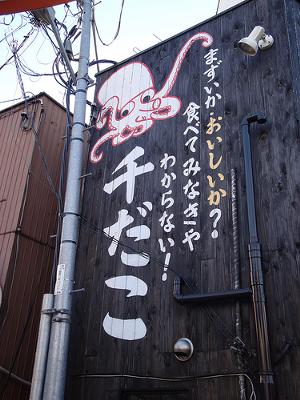 まずいかおいしいか?
食べてみなきゃ
わからない!
千だこ